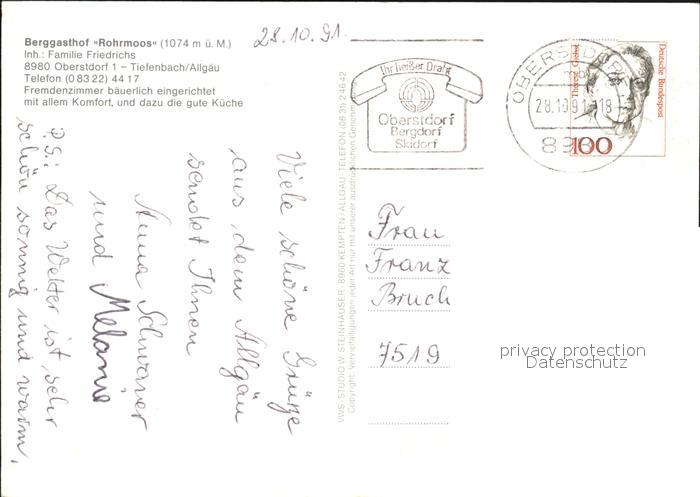 Berggasthof "Rohrmoos" (1074 m ü. M.)
Inh.: Familie Friedrichs
8980 Oberstdorf 1 – Tiefenbach/Allgäu
Telefon (0 83 22) 44 17
Fremdenzimmer bäuerlich eingerichtet
mit allem Komfort, und dazu die gute Küche
28.10.91.
Viele schöne Grüße
aus dem Allgäu
sendet Ihnen
Anna
und Melanie
P.S.: Das Wetter ist sehr
schön sonnig und warm.
VWS · STUDIO W. STEINHAUSER · 8960 KEMPTEN/ALLGÄU · TELEFON (08 31) 2 46 42
Copyright. Vervielfältigungen jeder Art nur mit unserer ausdrücklichen Genehm
Ihr heißer Draht
Oberstdorf
Bergdorf
Skidorf
OBERSTDORF
28.10.91-18
Deutsche Bundespost
100
Frau
Franz
Bruch
7519
privacy protection
Datenschutz